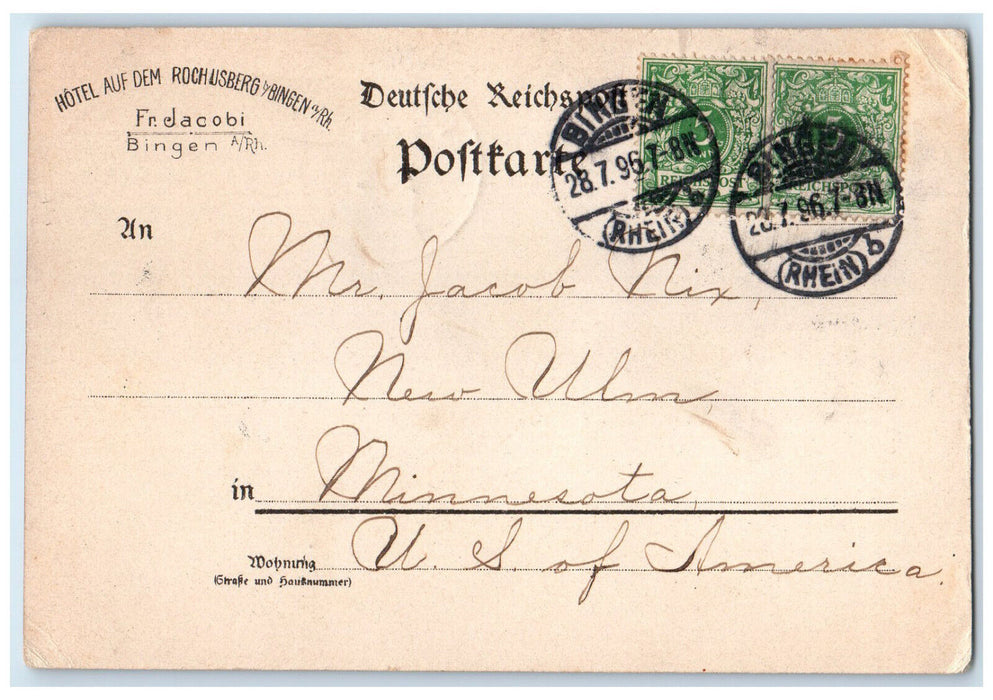 HÔTEL AUF DEM ROCHUSBERG b/BINGEN a/Rh.
Fr. Jacobi
Bingen A/Rh.
Deutsche Reichspost
Postkarte
BINGEN
28.7.96.7-8N
(RHEIN) b
BINGEN
28.7.96.7-8N
(RHEIN) b
5
REICHSPOST
5
REICHSPOST
An
Mr. Jacob Nix,
New Ulm,
in Minnesota,
Wohnung U. S. of America.
(Straße und Hausnummer)